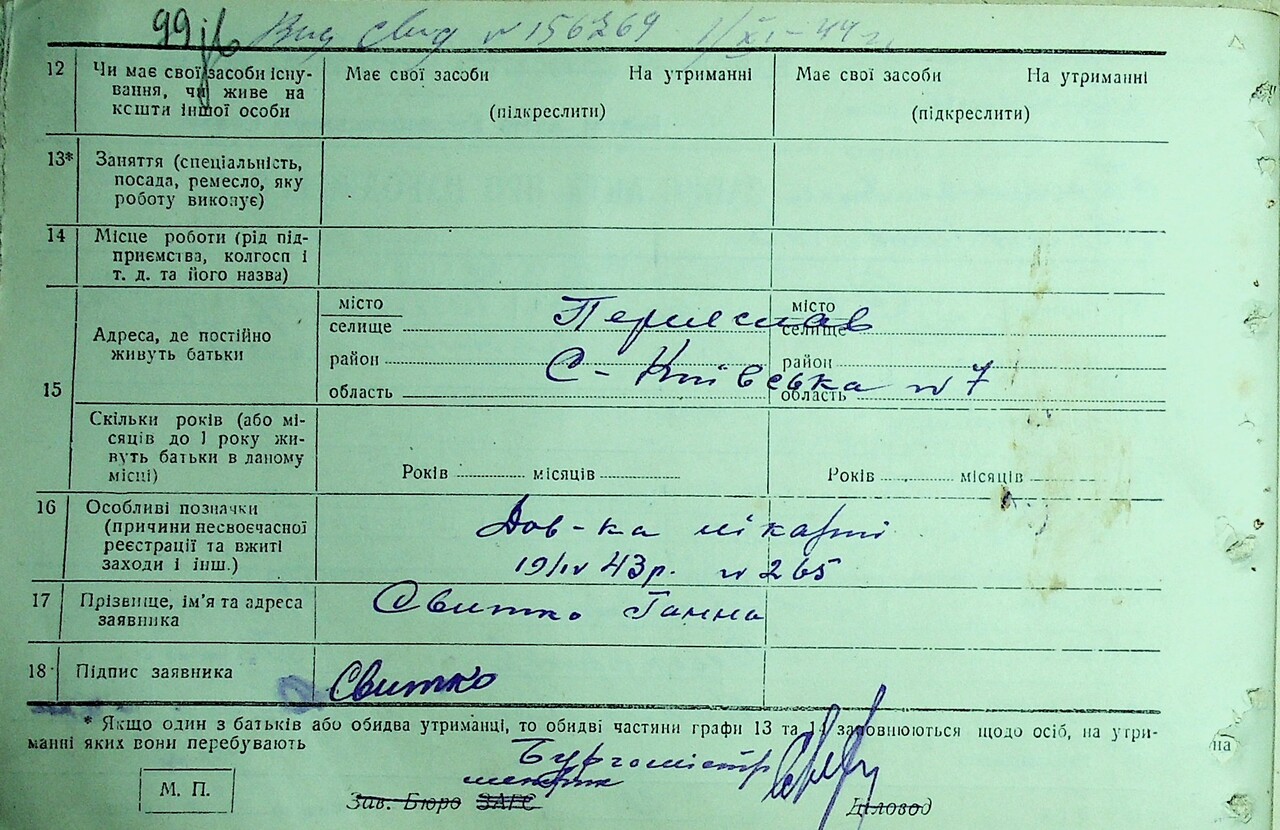 99 Вид Свид № 156269 1/XI-44 г.
12 Чи має свої засоби існу-
вання, чи живе на
кошти іншої особи
Має свої засоби На утриманні
(підкреслити)
Має свої засоби На утриманні
(підкреслити)
13* Заняття (спеціальність,
посада, ремесло, яку
роботу виконує)
14 Місце роботи (рід під-
приємства, колгосп і
т. д. та його назва)
15 Адреса, де постійно
живуть батьки
місто
селище Переяслав
район
область С-Київська № 7
місто
селище
район
область
Скільки років (або мі-
сяців до 1 року жи-
вуть батьки в даному
місці)
Років місяців
Років місяців
16 Особливі позначки
(причини несвоєчасної
реєстрації та вжиті
заходи і інш.)
Дов-ка лікарні
19/IV 43 р. № 265
17 Прізвище, ім'я та адреса
заявника
Свитко Ганна
18 Підпис заявника
Свитко
* Якщо один з батьків або обидва утриманці, то обидві частини графи 13 та 14 заповнюються щодо осіб, на утри-
манні яких вони перебувають
на
Бургомістр
М. П.
Зав. Бюро ЗАГС
Діловод